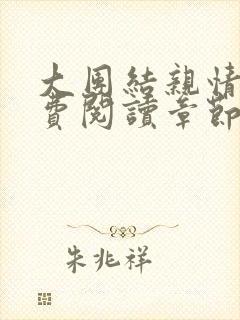 大團結親情
費閱讀章節
朱兆祥